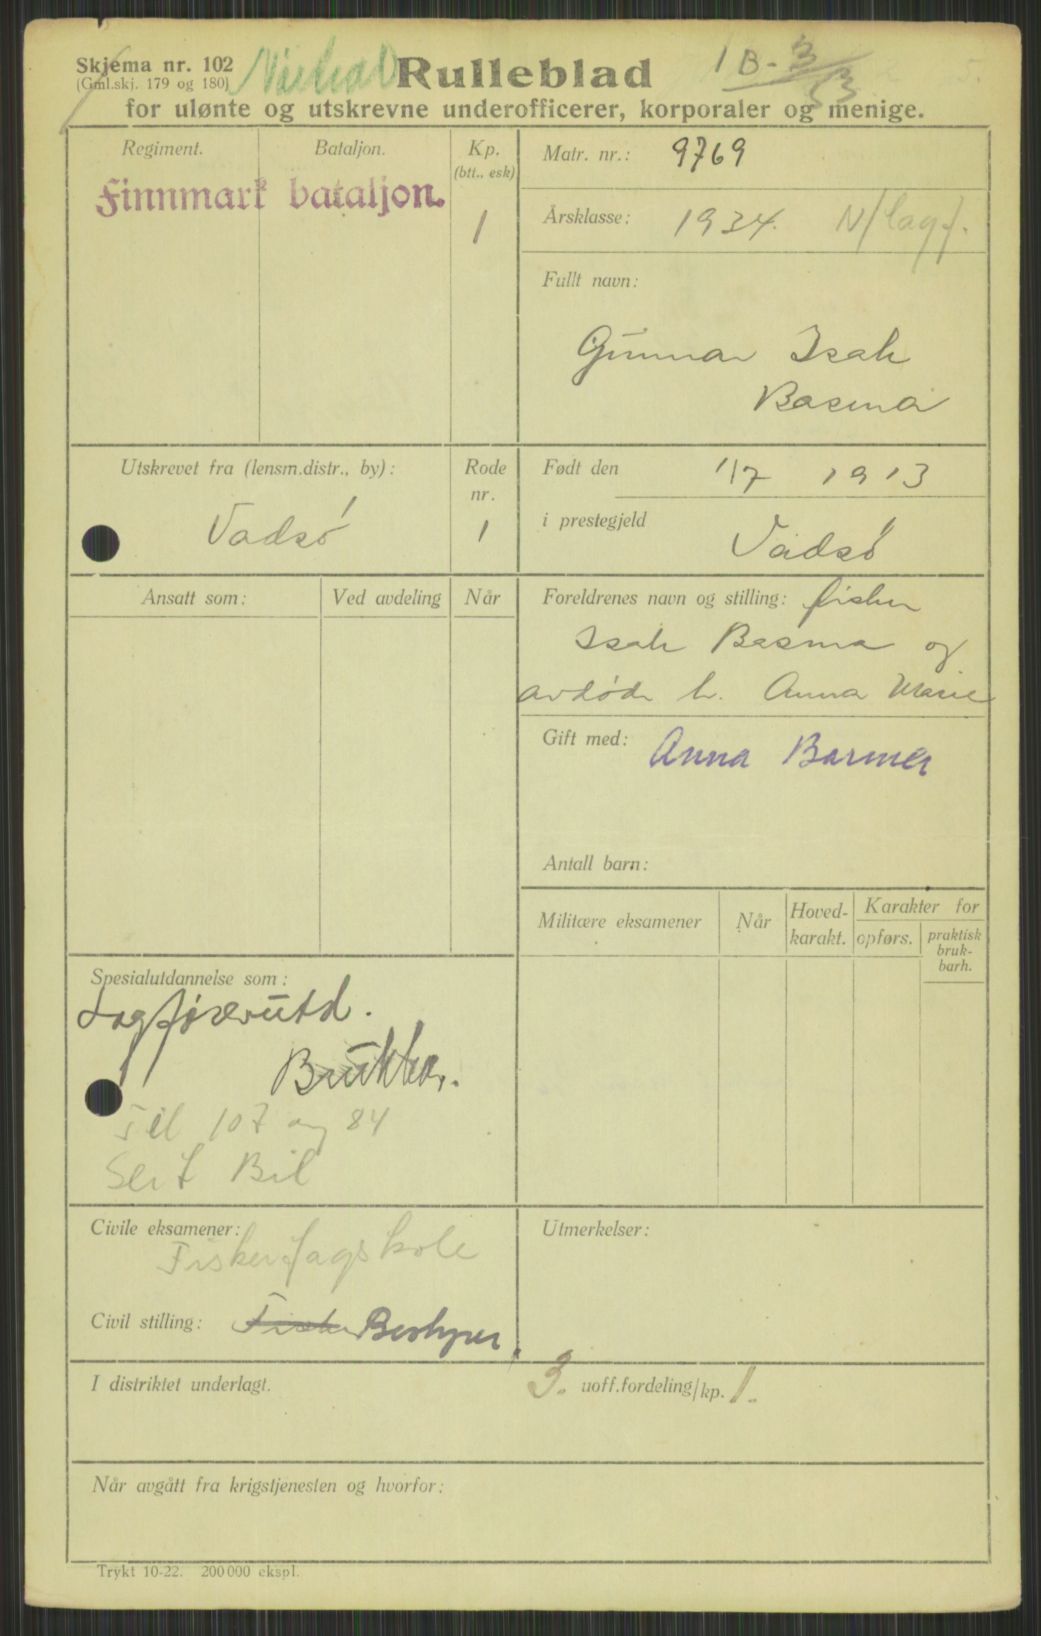 Skjema nr. 102
(Gml.skj. 179 og 180)
Rulleblad
1 B-3
53
for ulønte og utskrevne underofficerer, korporaler og menige.
Regiment. Bataljon. Kp.
(btt., esk)
Finnmark bataljon.
1
Matr. nr.: 9769
Årsklasse: 1934. N/lagf.
Fullt navn:
Gunnar Isak
Basma
Utskrevet fra (lensm.distr., by): Rode
nr.
Vadsø 1
Født den 1/7 1913
i prestegjeld Vadsø
Ansatt som: Ved avdeling Når
Foreldrenes navn og stilling: fisker
Isak Basma og
avdøde h. Anna Marie
Gift med: Anna Basma
Antall barn:
Militære eksamener Når Hoved-
karakt. Karakter for
opførs. praktisk
bruk-
barh.
Spesialutdannelse som:
Lagførerutd.
Brukbar.
Til 107 og 84
Sert Bil
Civile eksamener:
Fiskerfagskole
Civil stilling: Fisker Bestyrer.
Utmerkelser:
I distriktet underlagt. 3. uoff.fordeling/kp. 1.
Når avgått fra krigstjenesten og hvorfor:
Trykt 10-22. 200 000 ekspl.